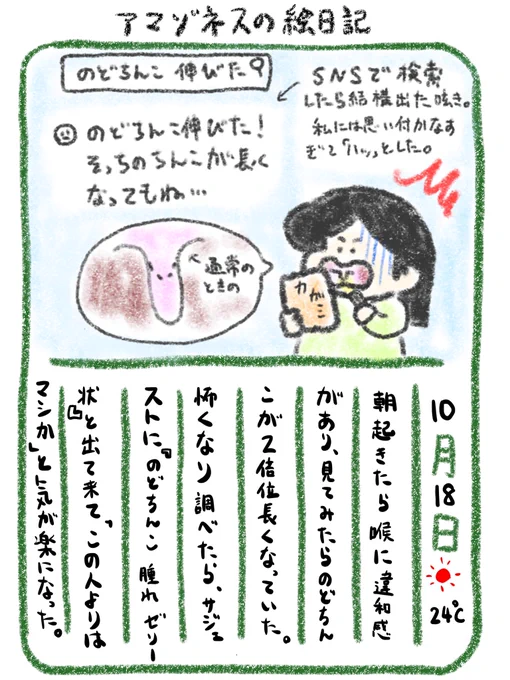 アマゾネスの絵日記
のどちんこ 伸びた
SNSで検索
したら結構出た呟き。
私には思い付かなす
ぎて「ハッ」とした。
のどちんこ伸びた!
そっちのちんこが長く
なってもね…
通常の
ときの
カガミ
10月18日 24℃
朝起きたら喉に違和感
があり、見てみたらのどちん
こが2倍位長くなっていた。
怖くなり調べたら、サジェ
ストに『のどちんこ 腫れ ゼリー
状』と出て来て、「この人よりは
マシか」と気が楽になった。